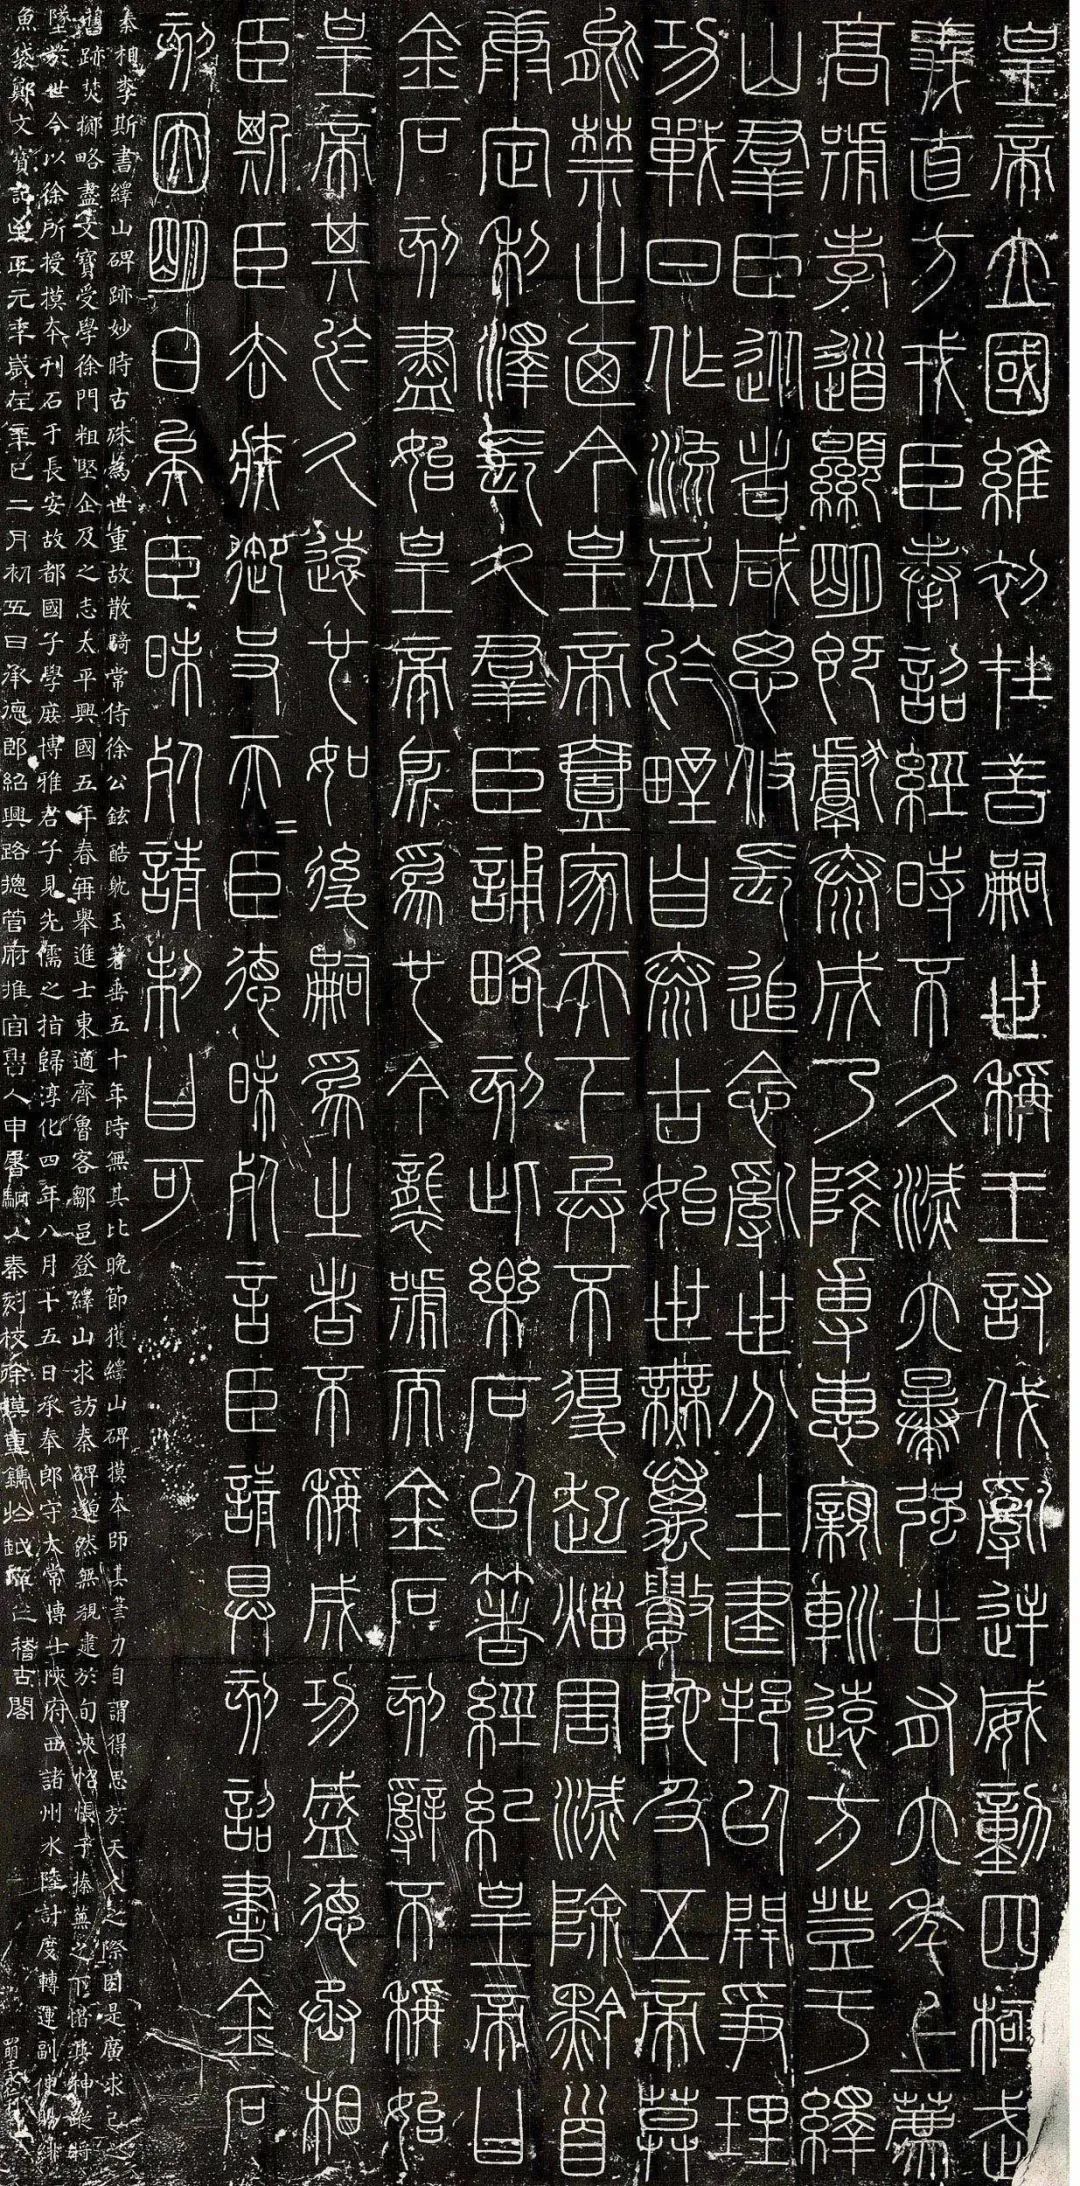 皇帝立國維初在昔嗣世稱王討伐亂逆威動四極武
義直方戎臣奉詔經時不久滅六暴強廿有六年上薦
高號孝道顯明既獻泰成乃降專惠親巡遠方登于繹
山羣臣從者咸思攸長追念亂世分土建邦以開爭理
功戰日作流血於野自泰古始世無萬數陀及五帝莫
能禁止廼今皇帝壹家天下兵不復起烖害滅除黔首
康定利澤長久羣臣誦略刻此樂石以著經紀皇帝曰
金石刻盡始皇帝所爲也今襲號而金石刻辭不稱始
皇帝其於久遠也如後嗣爲之者不稱成功盛德丞相
臣斯臣去疾御史夫=臣德昧死言臣請具刻詔書金石
刻因明白矣臣昧死請制曰可
秦相李斯書繹山碑跡妙時古殊為世重故散騎常侍徐公鉉酷躭玉箸垂五十年時無其比晚節獲繹山碑摸本師其筆力自謂得思於天人之際因是廣求己之
舊跡焚擲略盡文寶受學徐門粗堅企及之志太平興國五年春再舉進士東適齊魯客鄒邑登繹山求訪秦碑邈然無覩逮於旬浹怊悵于榛蕪之下惜其神蹤將
墜於世今以徐所授摸本刊石于長安故都國子學庶博雅君子見先儒之指歸淳化四年八月十五日承奉郎守太常博士陝府西諸州水陸計度轉運副使賜緋
魚袋鄭文寶記至正元年歲在辛巳二月初五日承德郎紹興路總管府推官魯人申屠駉以秦刻校徐摸重鐫於越庠之稽古閣